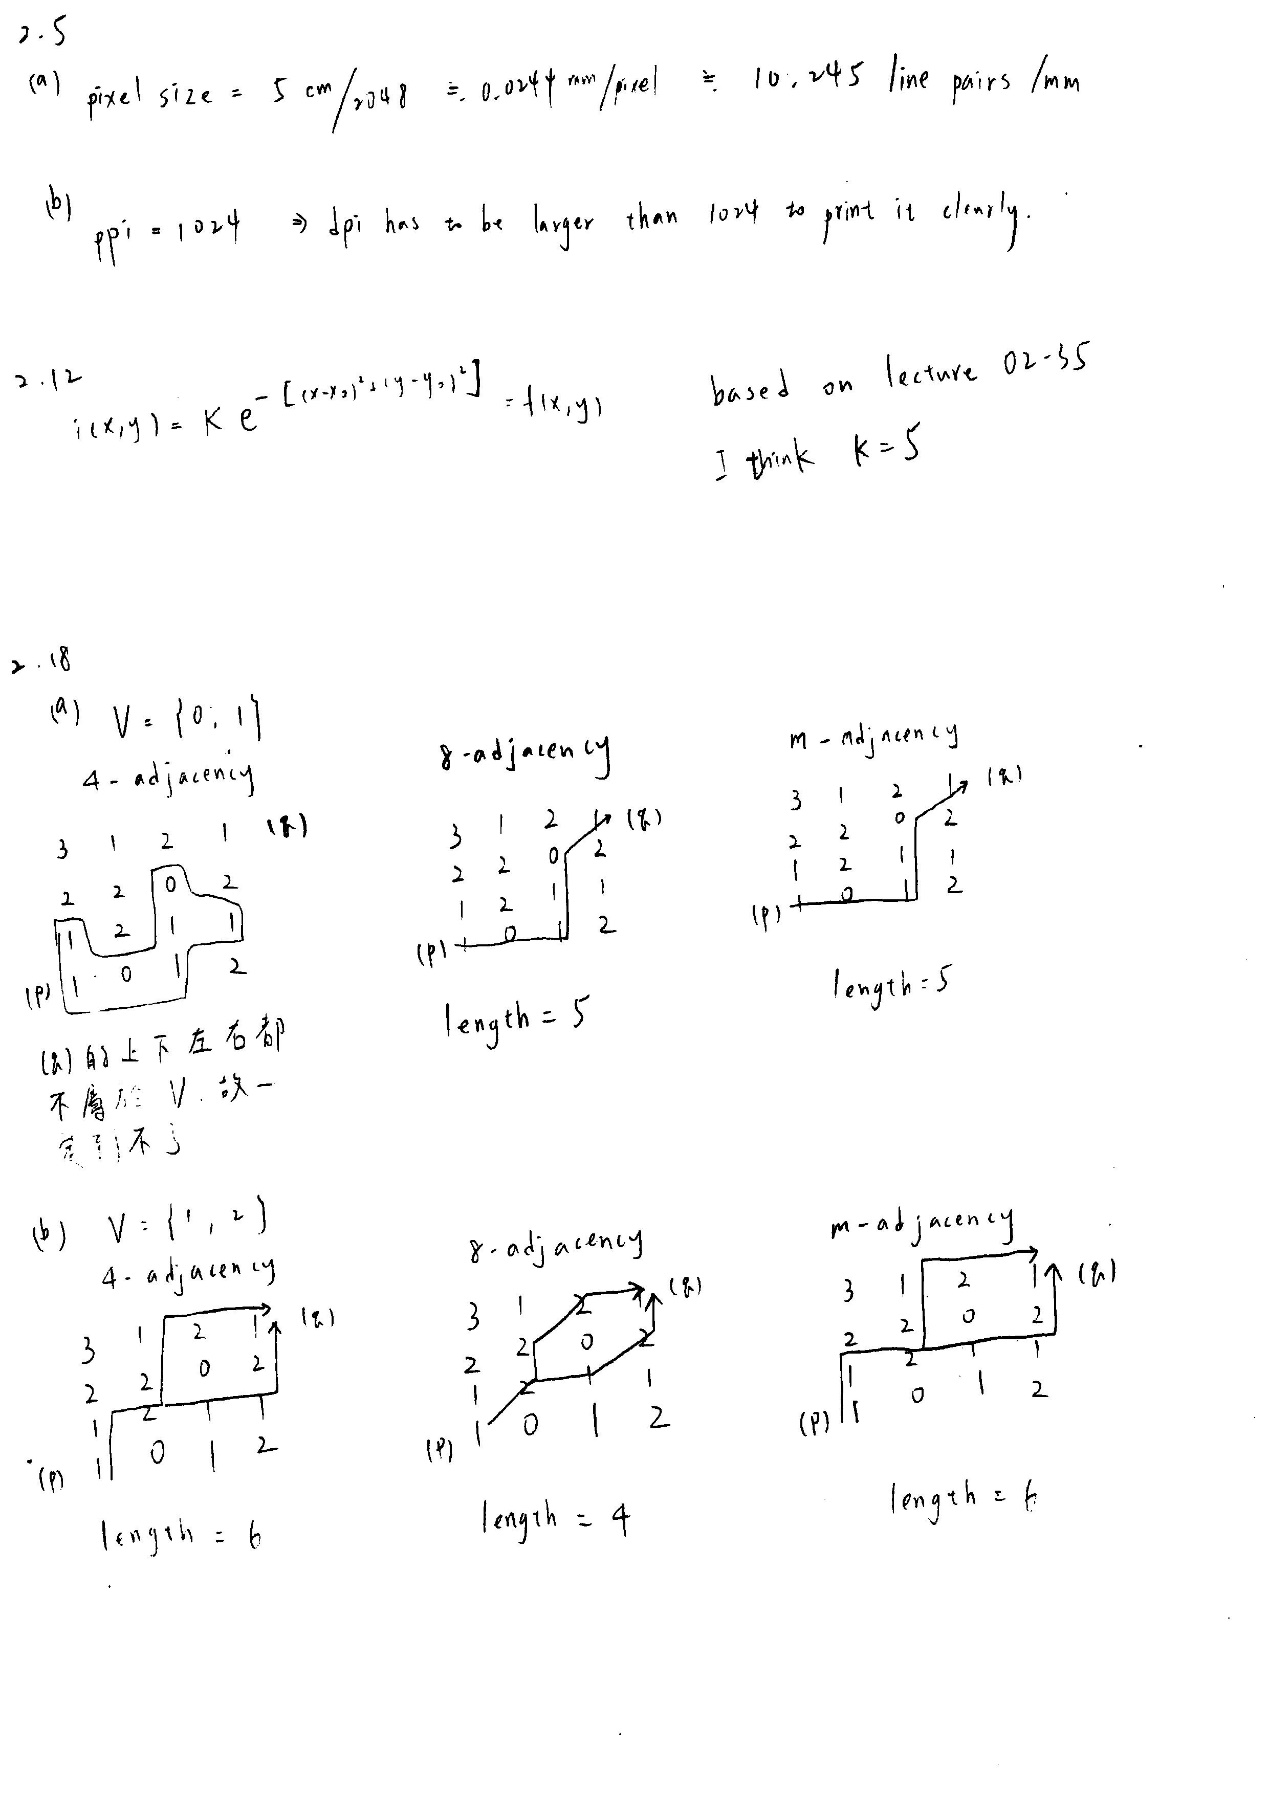 2.5
(a) pixel size = 5 cm/2048 ≒ 0.0244 mm/pixel ≒ 10.245 line pairs /mm
(b) ppi = 1024 ⇒ dpi has to be larger than 1024 to print it clearly.
2.12
i(x,y) = K e^-[(x-x0)²+(y-y0)²] = f(x,y)
based on lecture 02-35
I think K=5
2.18
(a) V = {0, 1}
4-adjacency
3 1 2 1 (q)
2 2 0 2
1 2 1 1
(p) 1 0 1 2
(q)的上下左右都
不屬於 V. 故一
定到不了
8-adjacency
3 1 2 1 (q)
2 2 0 2
1 2 1 1
(p) 1 0 1 2
length = 5
m-adjacency
3 1 2 1 (q)
2 2 0 2
1 2 1 1
(p) 1 0 1 2
length = 5
(b) V = {1, 2}
4-adjacency
3 1 2 1 (q)
2 2 0 2
1 2 1 1
(p) 1 0 1 2
length = 6
8-adjacency
3 1 2 1 (q)
2 2 0 2
1 2 1 1
(p) 1 0 1 2
length = 4
m-adjacency
3 1 2 1 (q)
2 2 0 2
1 2 1 1
(p) 1 0 1 2
length = 6